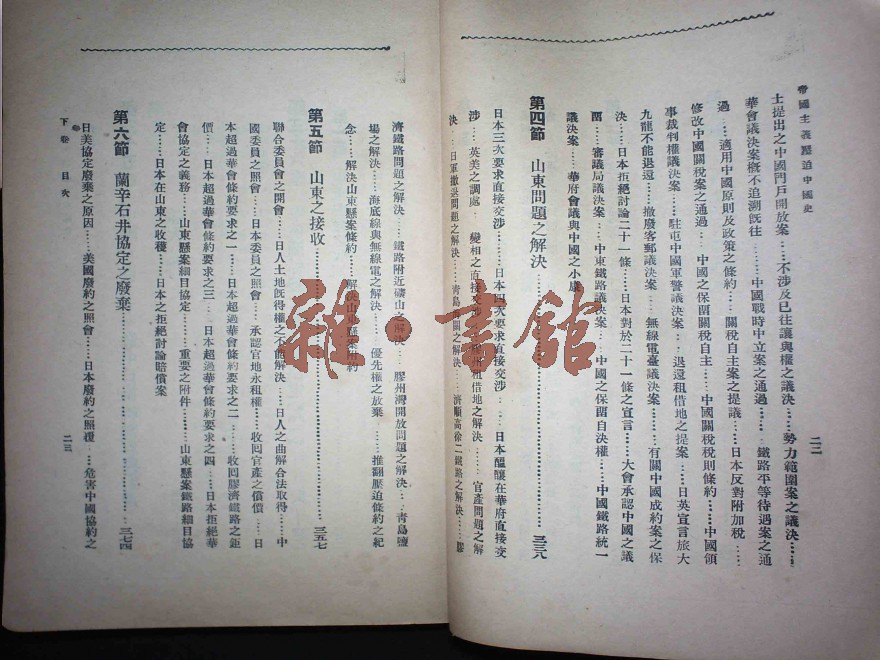 帝國主義壓迫中國史
二二
土提出之中國門戶開放案……不涉及已往讓與權之議決……勢力範圍案之議決……
華會議決案概不追溯既往……中國戰時中立案之通過……鐵路平等待遇案之通
過……適用中國原則及政策之條約……關稅自主案之提議……日本反對附加稅……
修改中國關稅案之通過……中國之保留關稅自主……中國關稅稅則條約……中國領
事裁判權議決案……駐屯中國軍警議決案……退還租借地之提案……日英宣言旅大
九龍不能退還……撤廢客郵議決案……無線電臺議決案……有關中國成約案之保
決……日本拒絕討論二十一條……日本對於二十一條之宣言……大會承認中國之議
留……審議局議決案……中東鐵路議決案……中國之保留自決權……中國鐵路統一
議決案……華府會議與中國之小康
第四節　山東問題之解決……三三八
日本三次要求直接交涉……日本四次要求直接交涉……日本醞釀在華府直接交
涉……英美之調處……變相之直接交涉……膠州租借地之解決……官產問題之解
決……日軍撤退問題之解決……青島海關之解決……濟順高徐二鐵路之解決……膠
濟鐵路問題之解決……鐵路附近礦山之解決……膠州灣開放問題之解決……青島鹽
場之解決……海底線與無線電之解決……優先權之放棄……推翻壓迫條約之紀
念……解決山東懸案條約……解決山東懸案附約
第五節　山東之接收……三五七
聯合委員會之開會……日人土地既得權之不能解決……日人之曲解合法取得……中
國委員之照會……日本委員之照會……承認官地永租權……收囘官產之償價……日
本超過華會條約要求之一……日本超過華會條約要求之二……收囘膠濟鐵路之鉅
價……日本超過華會條約要求之三……日本超過華會條約要求之四……日本拒絕華
會協定之義務……山東懸案細目協定……重要之附件……山東懸案鐵路細目協
定……日本在山東之收穫……日本之拒絕討論賠償案
第六節　蘭辛石井協定之廢棄……三七四
日美協定廢棄之原因……美國廢約之照會……日本廢約之照覆……危害中國協約之
下卷　目次
二三
雜·書館